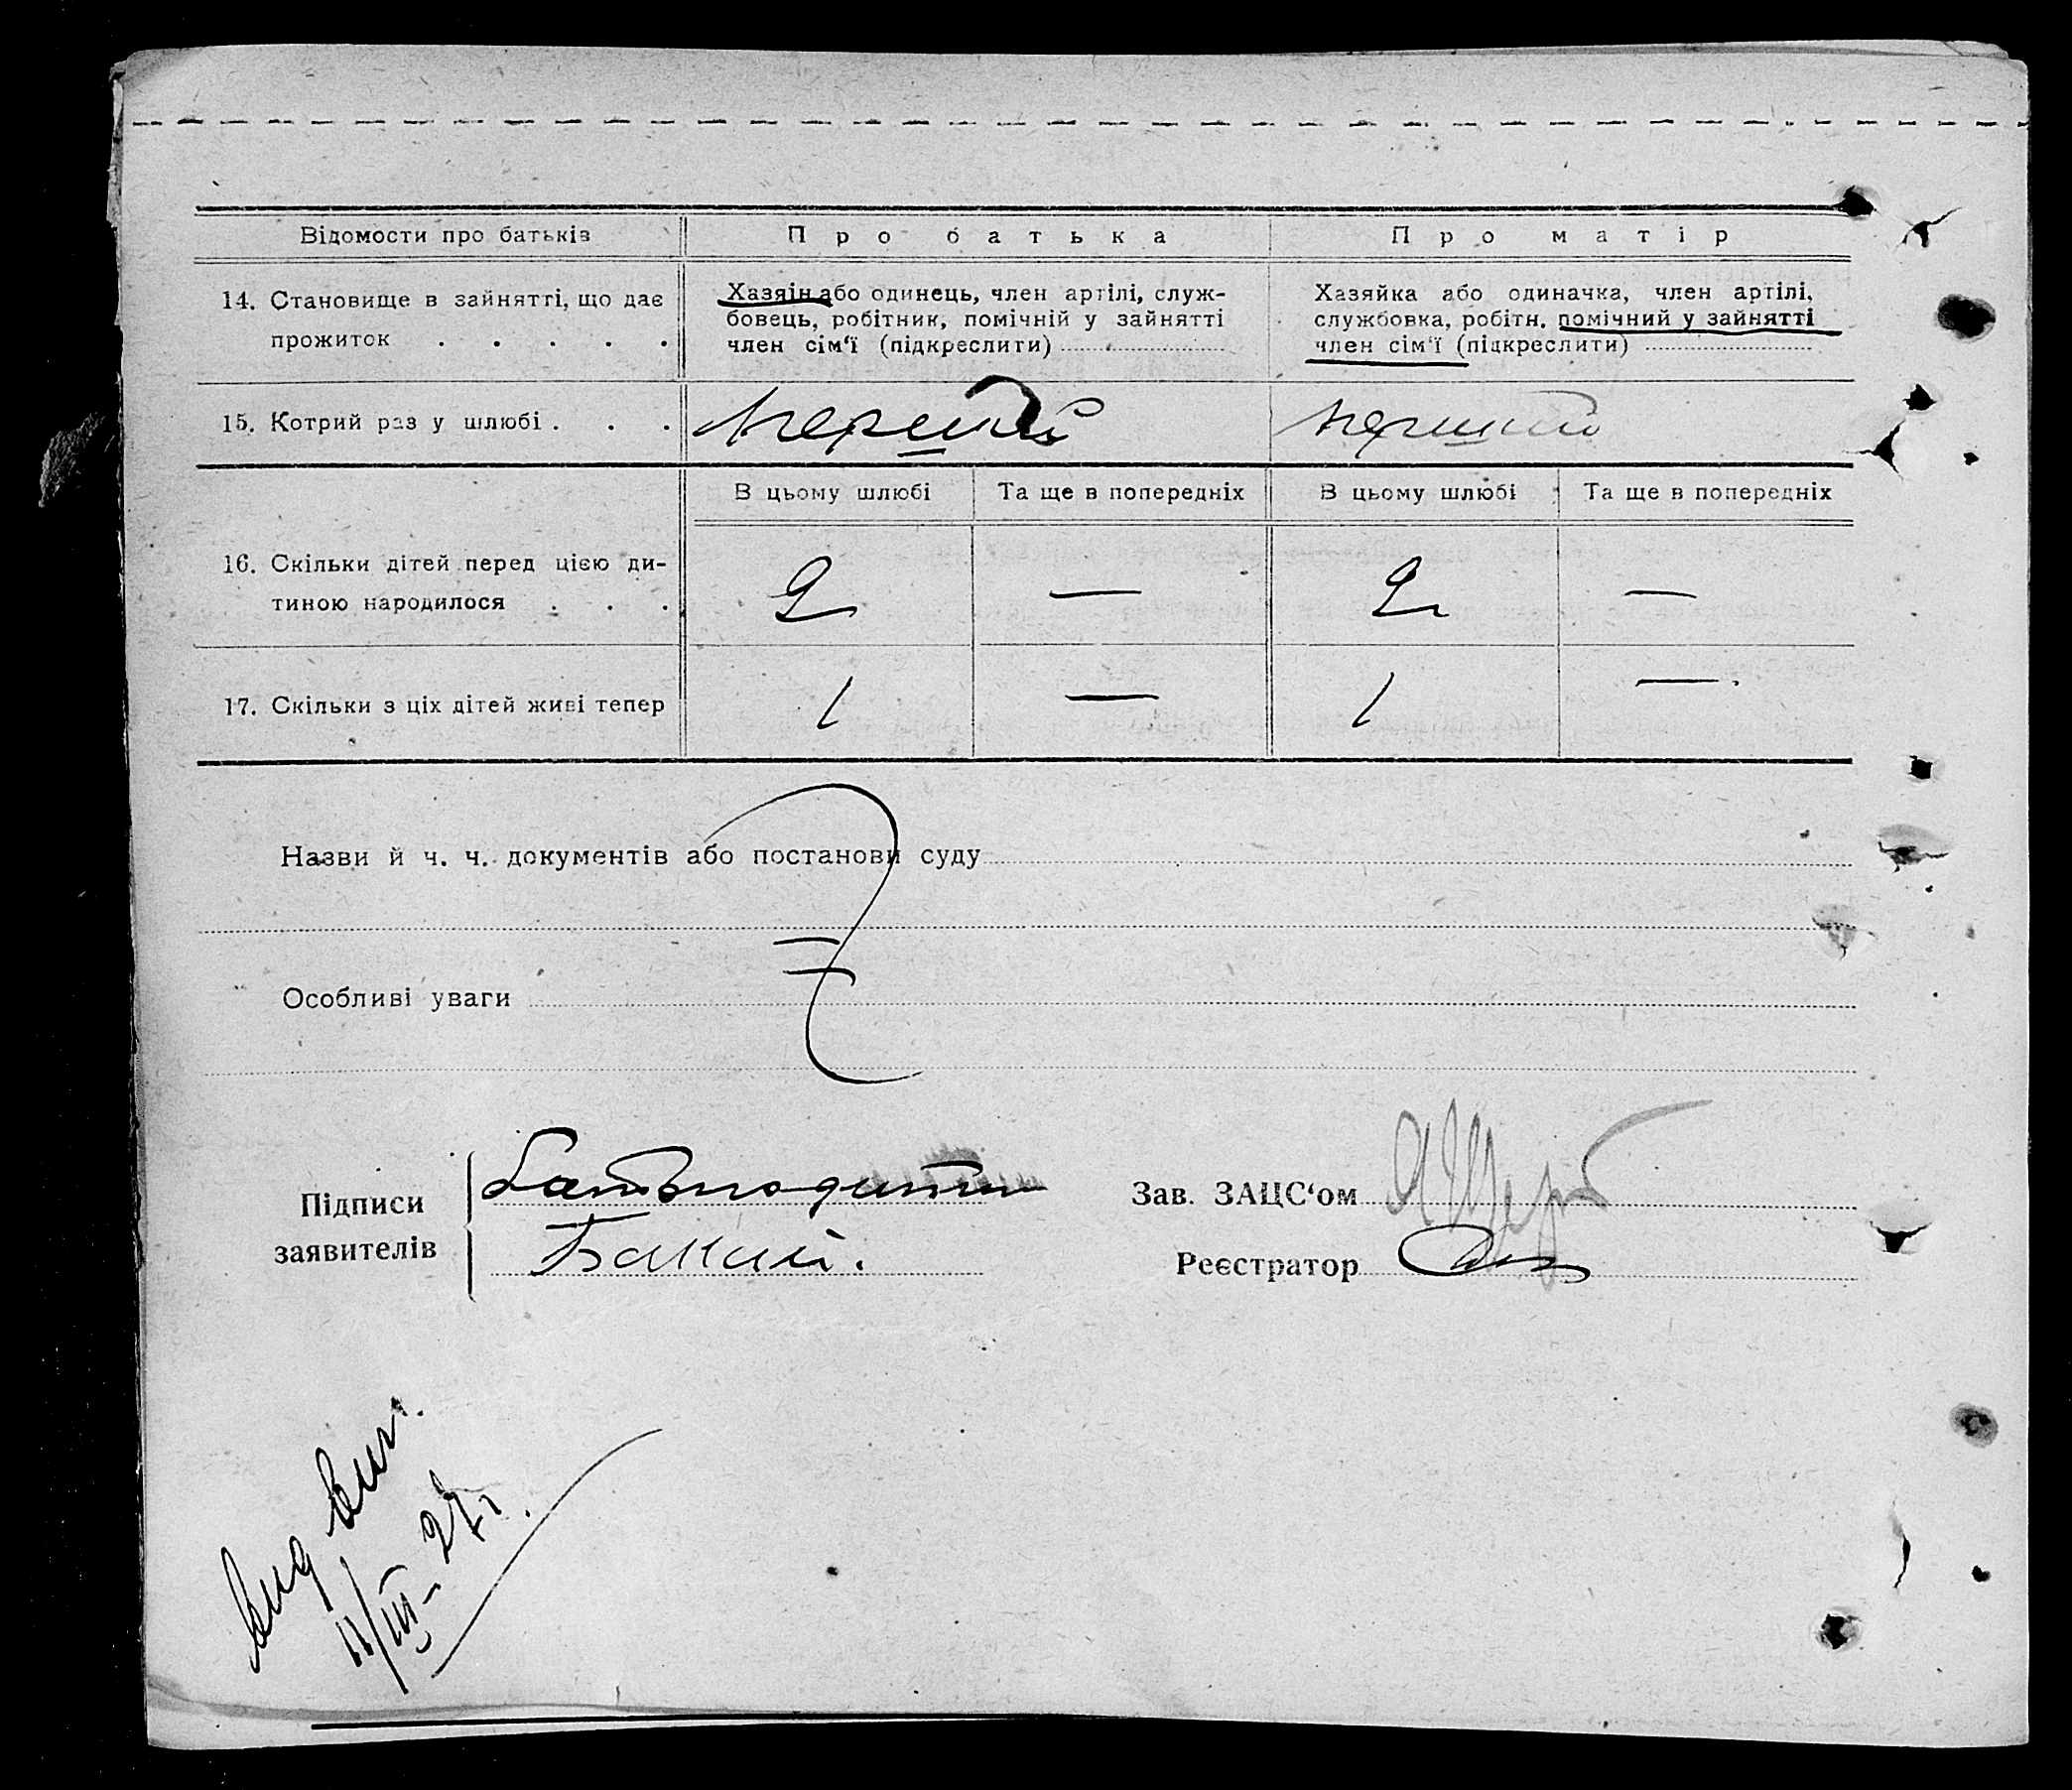 Відомости про батьків
Про батька
Про матір
14. Становище в зайнятті, що дає
прожиток . . . . .
Хазяін або одинець, член артілі, служ-
бовець, робітник, помічній у зайнятті
член сім'ї (підкреслити)
Хазяйка або одиначка, член артілі,
службовка, робітн. помічний у зайнятті
член сім'ї (підкреслити)
15. Котрий раз у шлюбі . . .
перший
перший
В цьому шлюбі
Та ще в попередніх
В цьому шлюбі
Та ще в попередніх
16. Скільки дітей перед цією ди-
тиною народилося . . .
2
—
2
—
17. Скільки з ціх дітей живі тепер
1
—
1
—
Назви й ч. ч. документів або постанови суду
Особливі уваги
Підписи
заявителів
Батько дитини
Бакай.
Зав. ЗАЦС'ом
Реєстратор
11/III-27 г.